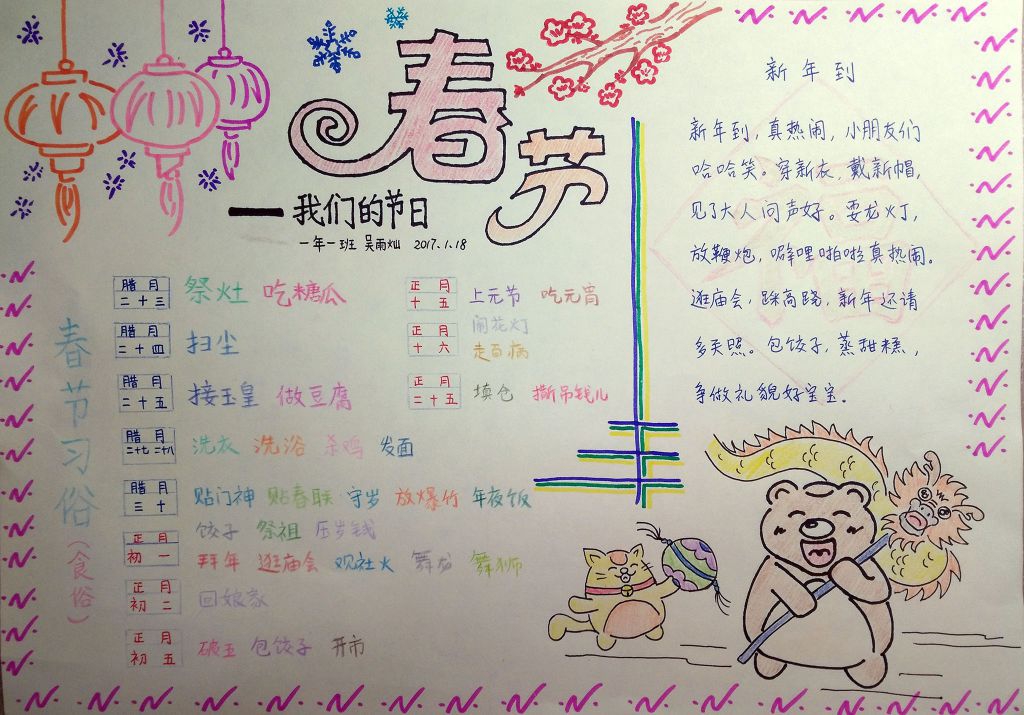 春节
一我们的节日
一年一班 吴雨灿 2017.1.18
春节习俗(食俗)
腊月二十三 祭灶 吃糖瓜
腊月二十四 扫尘
腊月二十五 接玉皇 做豆腐
腊月二十七 二十八 洗衣 洗浴 杀鸡 发面
腊月三十 贴门神 贴春联 守岁 放爆竹 年夜饭
饺子 祭祖 压岁钱
正月初一 拜年 逛庙会 观社火 舞龙 舞狮
正月初二 回娘家
正月初五 破五 包饺子 开市
正月十五 上元节 吃元宵
闹花灯
正月十六 走百病
正月二十五 填仓 撕吊钱儿
新年到
新年到,真热闹,小朋友们
哈哈笑。穿新衣,戴新帽,
见了大人问声好。耍龙灯,
放鞭炮,噼哩啪啦真热闹。
逛庙会,踩高跷,新年还请
多关照。包饺子,蒸甜糕,
争做礼貌好宝宝.